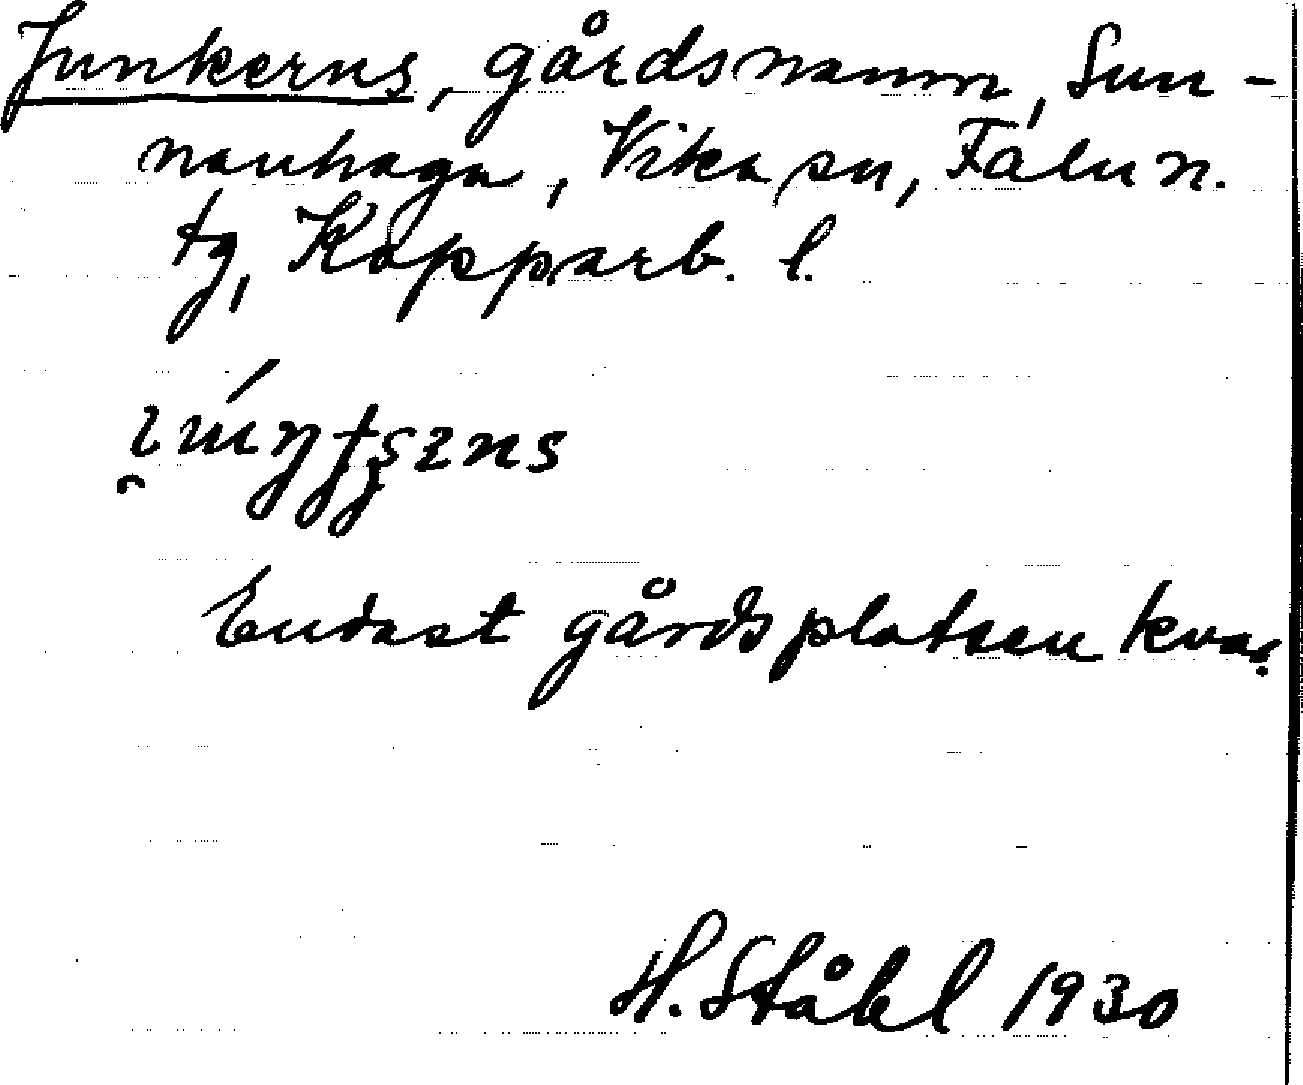 Junkerns, gårdsnamn, Sun-
nanhaga, Vika sn, Falu n.
tg, Kopparb. l.
Endast gårdsplatsen kvar.
H. Ståhl 1930